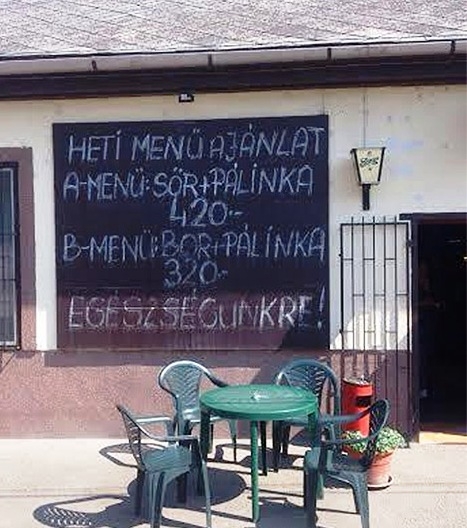 HETI MENÜ AJÁNLAT
A-MENÜ: SÖR+PÁLINKA
420.-
B-MENÜ: BOR+PÁLINKA
320.-
EGÉSZSÉGÜNKRE!